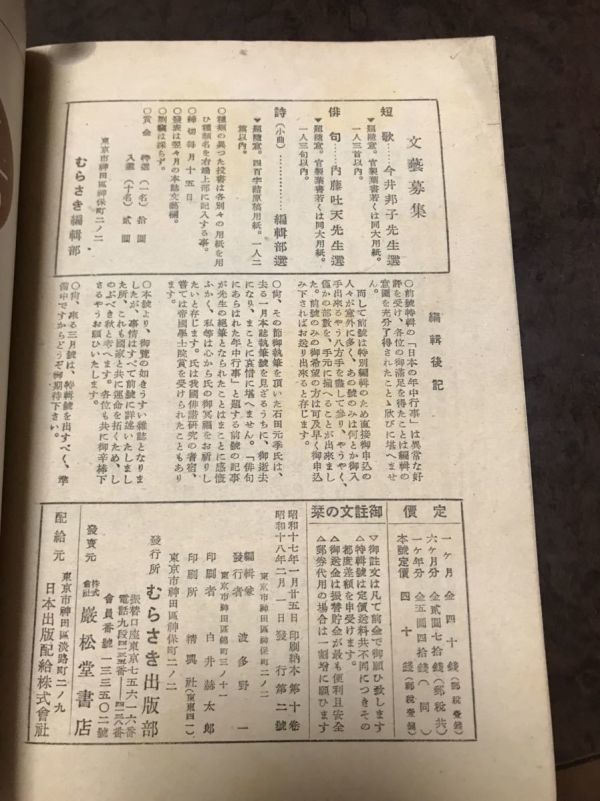 文藝募集
短歌……今井邦子先生選
▼題隨意。官製葉書若くは同大用紙。
一人三首以内。
俳句……内藤吐天先生選
▼題隨意。官製葉書若くは同大用紙。
一人三句以内。
詩(小曲)……………編輯部選
▼題隨意。四百字詰原稿用紙。一人二
篇以内。
○種類の異つた投書は各別々の用紙を用
ひ種類名を右端上部に記入する事。
○締切毎月十五日
○發表は翌々月の本誌文藝欄。
○賞金
特選(一名)拾圓
入選(十名)貳圓
東京市神田區神保町二ノ二
むらさき編輯部
編輯後記
○前號特輯の「日本の年中行事」は異常な好
評を受け、各位の御滿足を得たことは編輯の
意圖を充分了得されたことゝ欣びに堪へませ
ん。
而して前號は特別編輯のため直接御申込の
人々が意外に多く、あの號のみは何とか御入
手出來るやう八方手を盡して參り、やうやく、
僅かの部數を、手元に揃へることが出來まし
た。前號のみの御希望の方は可及早く御申込
み下さればお送り出來ると存じます。
○尚、その節御執筆を頂いた石田元季氏は、
去る一月本誌執筆號を見ざるうちに、御逝去
になり、まことに哀情に堪へません。「俳句
にあらはれた年中行事」と題する前號の記事
が先生の絕筆となられたことはまことに感慨
ふかく、私等は心から氏の御冥福をお祈りし
たいと存じます。氏は我國俳諧研究の耆宿、
嘗ては帝國學士院賞を受けられたこともあり
ます。
○本號より、御覽の如きうすい雜誌となりま
したが、事情はすべて前號に詳述いたしまし
た所、これも國家と共に運命を拓くため、し
のぶべき秋と考へます。各位も共に御辛棒下
さるやうお願ひいたします。
○尚、來る三月號は、特輯號を出すべく、準
備中ですからどうぞ御期待下さい。
定價
一ヶ月 金四十錢(郵稅壹錢)
六ヶ月分 金貳圓七拾錢(郵稅共)
一ヶ年分 金五圓四拾錢(同)
本號定價 四十錢(郵稅壹錢)
御註文の栞
▽御註文は凡て前金で御願ひ致します
△特輯號は定價送料共不同につきその
都度差額を申受けます。
△御送金は振替貯金が最も便利且安全
△郵券代用の場合は一割增に願ひます
昭和十七年一月廿五日印刷納本 第十卷
昭和十八年二月一日發行 第二號
東京市神田區神保町二ノ二
編輯兼發行者 波多野一
東京市神田區錦町三ノ十一
印刷者 白井赫太郎
印刷所 精興社(東東四一)
東京市神田區神保町二ノ二
發行所 むらさき出版部
振替口座東京七五六一六番
電話九段四二五番—四二八番
會員番號一三三五〇二號
發賣元 株式會社 巖松堂書店
東京市神田區淡路町二ノ九
配給元 日本出版配給株式會社